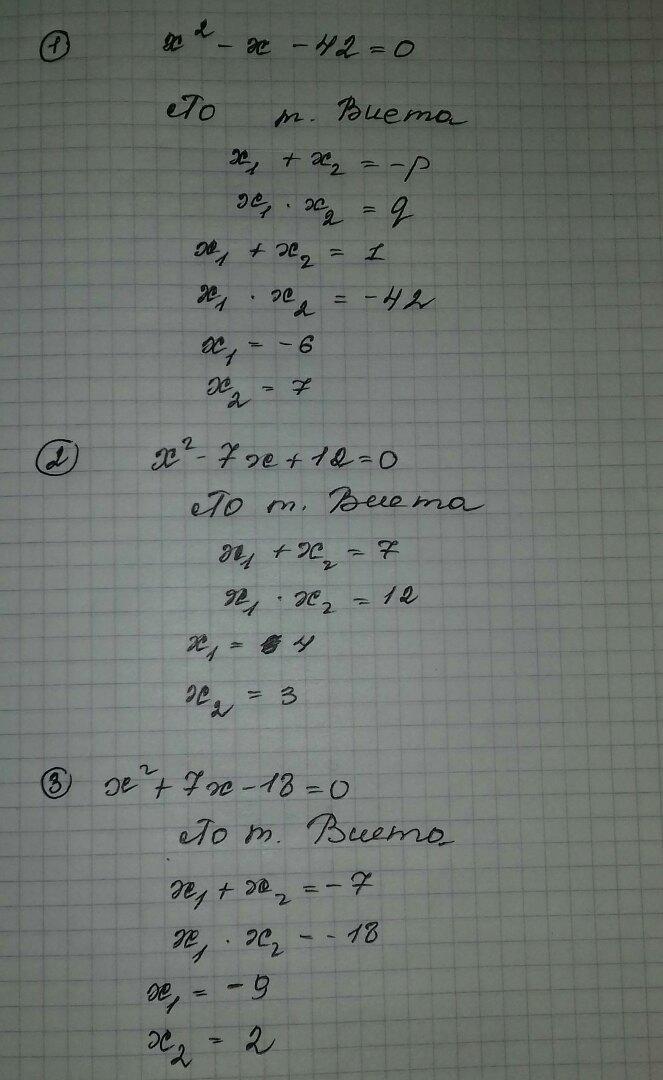 ① x² - x - 42 = 0
По т. Виета
x₁ + x₂ = -p
x₁ · x₂ = q
x₁ + x₂ = 1
x₁ · x₂ = -42
x₁ = -6
x₂ = 7
② x² - 7x + 12 = 0
По т. Виета
x₁ + x₂ = 7
x₁ · x₂ = 12
x₁ = 4
x₂ = 3
③ x² + 7x - 18 = 0
По т. Виета
x₁ + x₂ = -7
x₁ · x₂ = -18
x₁ = -9
x₂ = 2